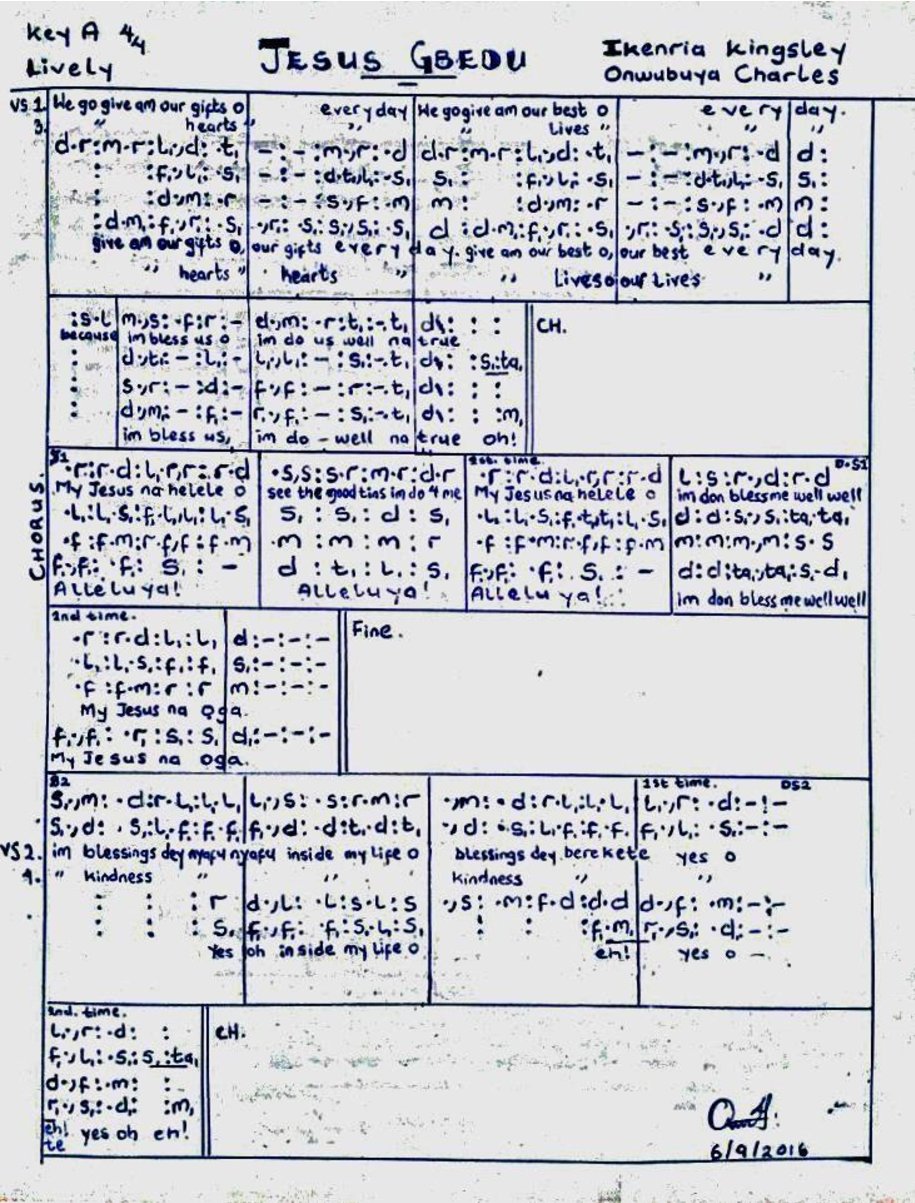 Key A 4/4
Lively
JESUS GBEDU
Ikenria Kingsley
Onwubuya Charles
VS 1. We go give am our gifts o everyday We go give am our best o every day.
3. " hearts " " " Lives " " "
d.r:m.r:l₁.,d:.t₁ -:-:m.,r:.d d.r:m.r:l₁.,d:.t₁ -:-:m.,r:.d d:
: :f₁.,l₁:.s₁ -:-:d.,t₁,l₁:.s₁ s₁: :f₁.,l₁:.s₁ -:-:d.,t₁,l₁:.s₁ s₁:
: :d.,m:.r -:-:s.,f:.m m: :d.,m:.r -:-:s.,f:.m m:
:d.m₁:f₁.,r₁:.s₁ .,r₁:.s₁:s₁.,s₁:.s₁ d:d.m₁:f₁.,r₁:.s₁ .,r₁:.s₁:s₁.,s₁:.d d:
give am our gifts o, our gifts every day. give am our best o, our best every day.
" hearts " hearts " " Lives o our Lives "
:s.l m.,s:.f:r:- d.,m:.r:t₁:-.t₁ d\: : : CH.
because im bless us o im do us well na true
: d.,t₁:-:l₁:- l₁.,l₁:-:s₁:-.t₁ d\: :s₁:ta₁
: s.,r:-:d:- f.,f:-:r:-.t₁ d\: : :
: d.,m₁:-:f₁:- r₁.,f₁:-:s₁:-.t₁ d\: : :m₁
im bless us, im do - well na true oh!
CHORUS.
S1 1st. time. D.S1
.r:r.d:l₁.r,r:r.d .s,s:s.r:m.r:d.r .r:r.d:l₁.r,r:r.d l:s:r.,d:r.d
My Jesus na helele o see the good tins im do 4 me My Jesus na helele o im don bless me well well
.l₁:l₁.s₁:f₁.l₁,l₁:l₁.s₁ s₁:s₁:d:s₁ .l₁:l₁.s₁:f₁.t₁,t₁:l₁.s₁ d:d:s₁.,s₁:ta₁.ta₁
.f:f.m:r.f,f:f.m .m:m:m:r .f:f.m:r.f,f:f.m m:m:m.,m:s.s
f₁.,f₁:.f₁:s₁:- d:t₁:l₁:s₁ f₁.,f₁:.f₁:s₁:- d:d:ta₁.,ta₁:s₁.d₁
Alleluya! Alleluya! Alleluya! im don bless me well well
2nd time.
.r:r.d:l₁:l₁ d:-:-:- Fine.
.l₁:l₁.s₁:f₁:f₁ s₁:-:-:-
.f:f.m:r:r m:-:-:-
My Jesus na ọga.
f₁.,f₁:.r₁:s₁:s₁ d₁:-:-:-
My Jesus na oga.
S2 1st time. DS2
s₁.,m:.d:r.l₁:l₁.l₁ l₁.,s:.s:r.m:r .,m:.d:r.l₁:l₁.l₁ l₁.,r:.d:-:-
s₁.,d:.s₁:l₁.f₁:f₁.f₁ f₁.,d:.d:t₁.d:t₁ .,d:.s₁:l₁.f₁:f₁.f₁ f₁.,l₁:.s₁:-:-
VS 2. im blessings dey nyafu nyafu inside my life o blessings dey berekete yes o
4. " kindness " " kindness " "
: : :r d.,l:.l:s.l:s .,s:.m:f.d:d.d d.,f:.m:-:-
: : :s₁ f₁.,f₁:.f₁:s₁.l₁:s₁ : : :f₁.m₁ r₁.,s₁:.d₁:-:-
Yes oh inside my life o eh! yes o -
2nd. time.
l₁.,r:.d: : CH.
f₁.,l₁:.s₁:s₁:ta₁
d.,f:.m: :
r₁.,s₁:.d₁: :m₁
eh! yes oh eh!
te
6/9/2016